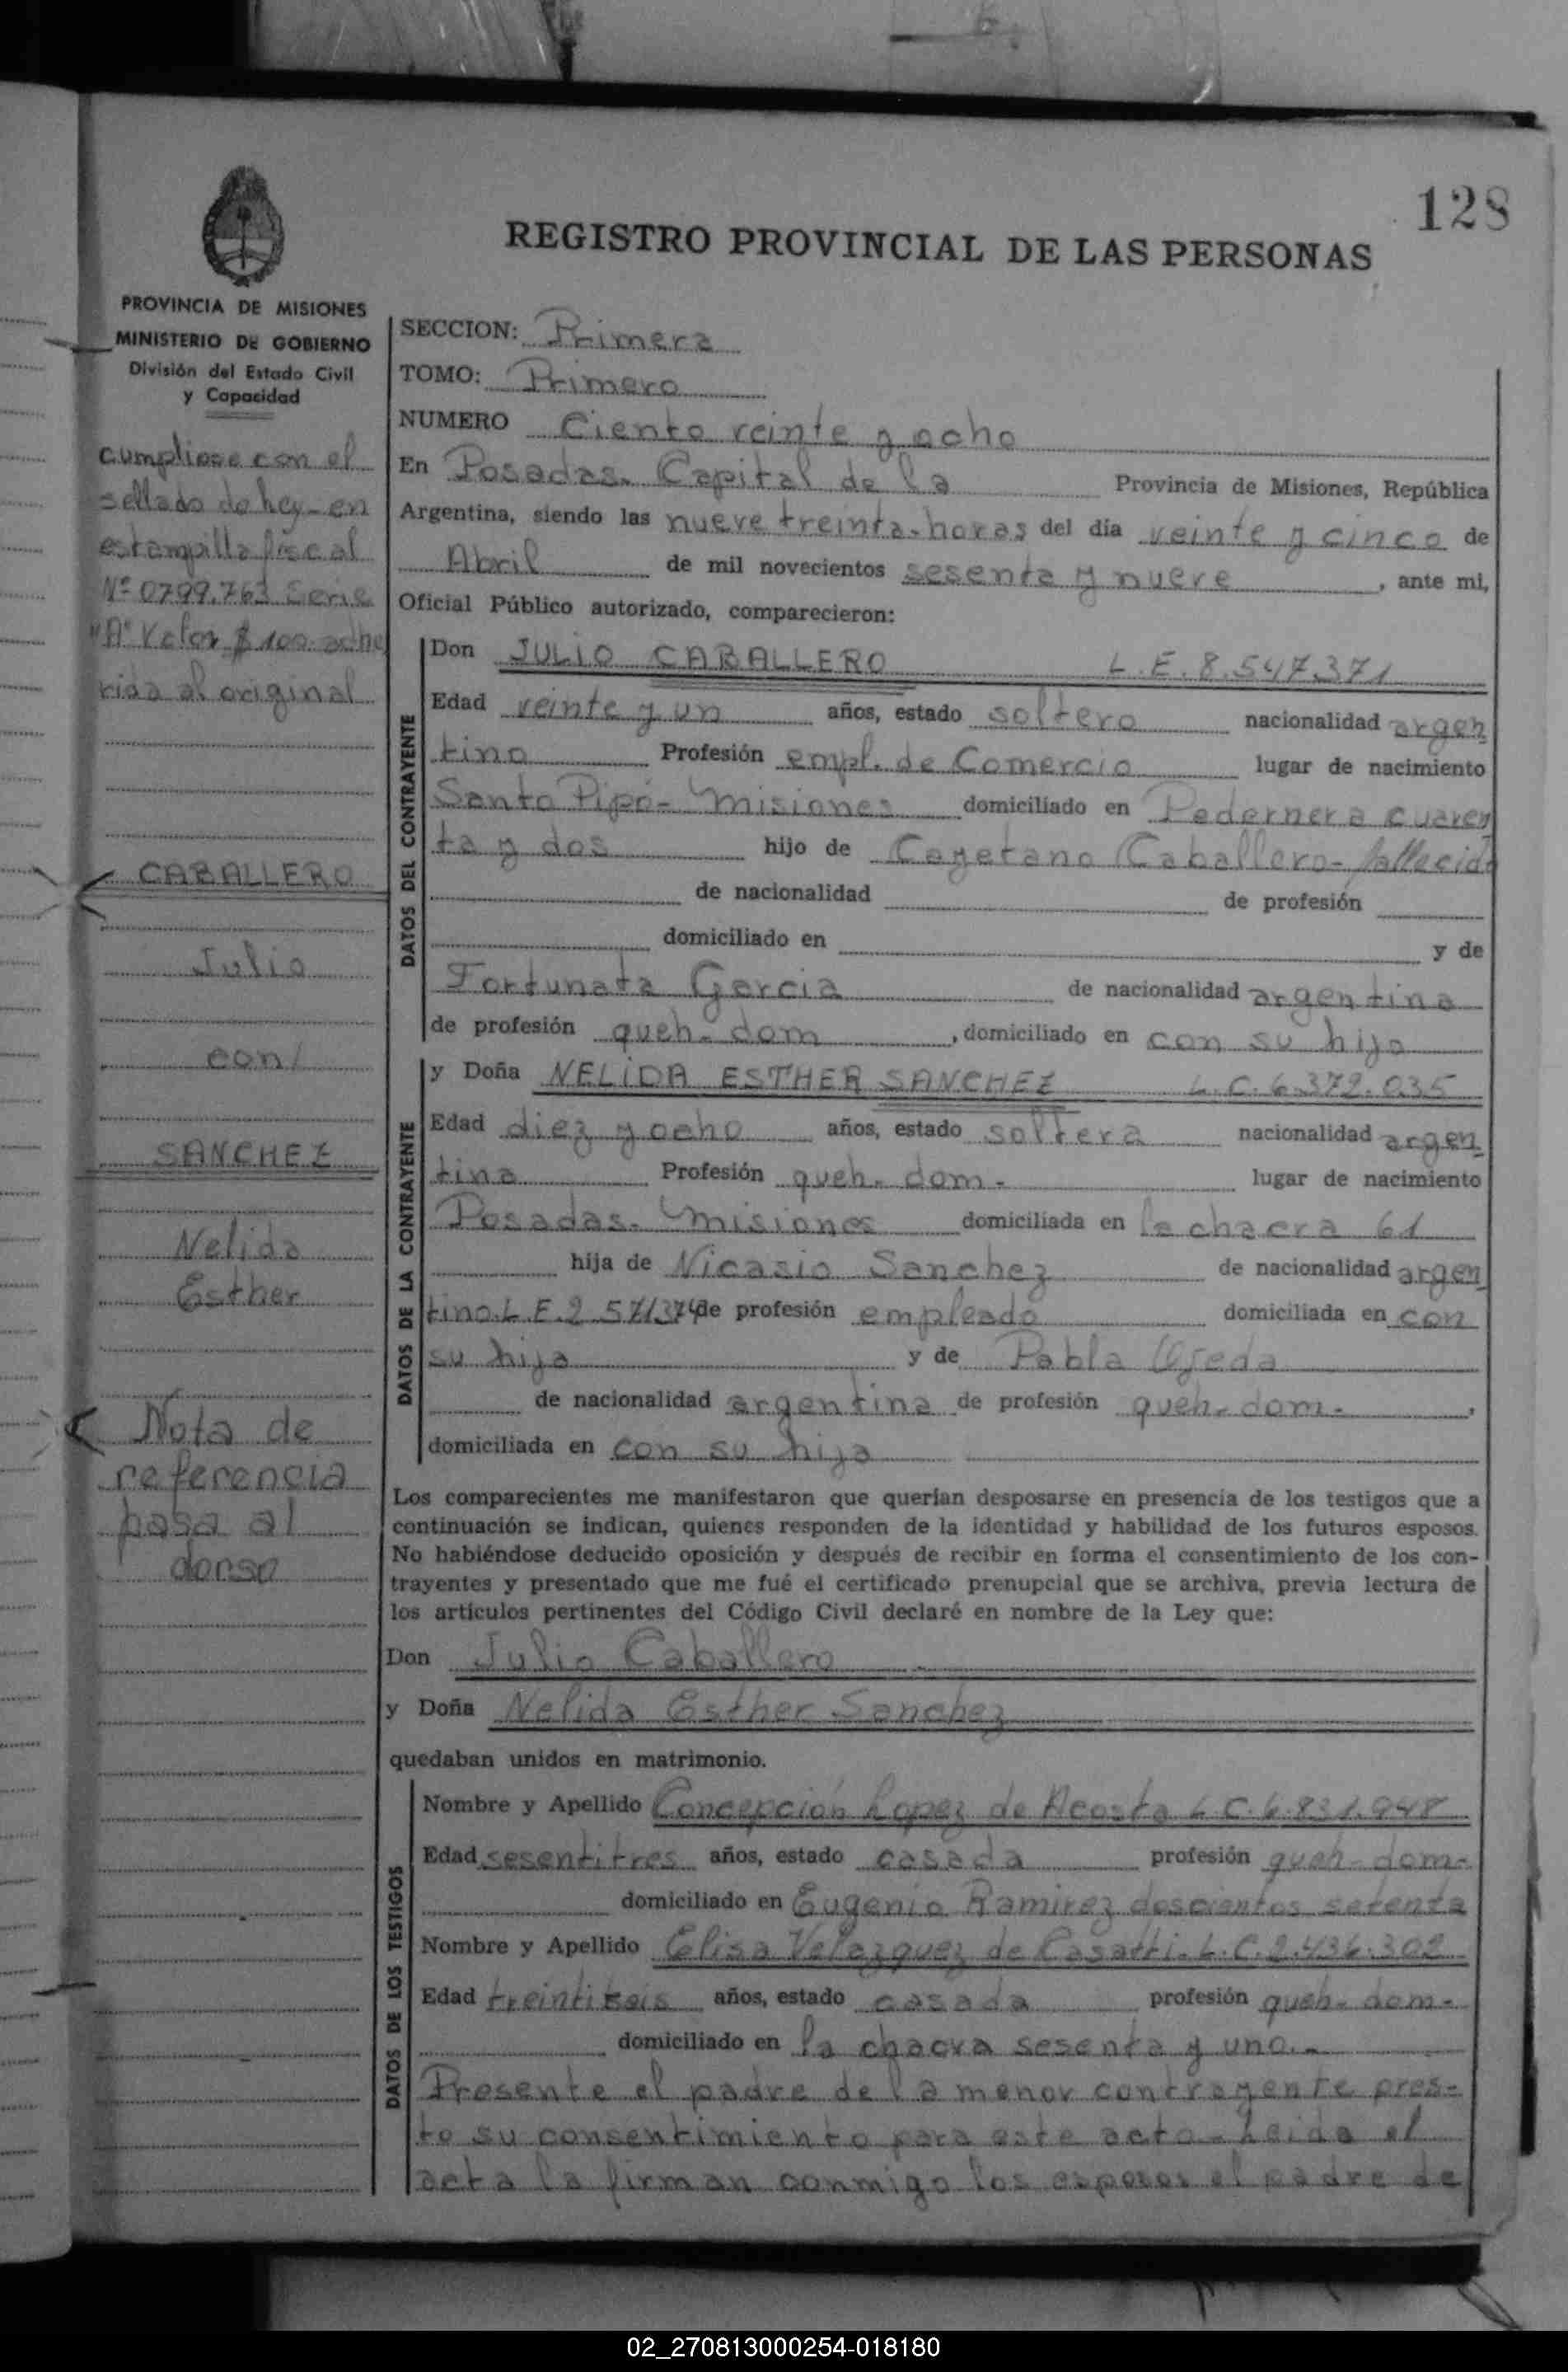 128
REGISTRO PROVINCIAL DE LAS PERSONAS
PROVINCIA DE MISIONES
MINISTERIO DE GOBIERNO
División del Estado Civil
y Capacidad
cumpliose con el
sellado de ley-en
estampilla fiscal
Nº 0799.763 Serie
"A" Valor $ 100. adhe
rida al original
CABALLERO
Julio
con/
SANCHEZ
Nelida
Esther
Nota de
referencia
pasa al
dorso
SECCION: Primera
TOMO: Primero
NUMERO Ciento veinte y ocho
En Posadas. Capital de la Provincia de Misiones, República
Argentina, siendo las nueve treinta-horas del día veinte y cinco de
Abril de mil novecientos sesenta y nueve, ante mi,
Oficial Público autorizado, comparecieron:
DATOS DEL CONTRAYENTE
Don JULIO CABALLERO L.E.8.547.371
Edad veinte y un años, estado soltero nacionalidad argen
tino Profesión empl. de Comercio lugar de nacimiento
Santo Pipó-Misiones domiciliado en Pedernera cuaren
ta y dos hijo de Cayetano Caballero-fallecido
de nacionalidad de profesión
domiciliado en y de
Fortunata Garcia de nacionalidad argentina
de profesión queh-dom, domiciliado en con su hijo
DATOS DE LA CONTRAYENTE
y Doña NELIDA ESTHER SANCHEZ L.C.6.372.035
Edad diez y ocho años, estado soltera nacionalidad argen
tina Profesión queh-dom- lugar de nacimiento
Posadas-Misiones domiciliada en la chacra 61
hija de Nicasio Sanchez de nacionalidad argen
tino.L.E.2.571374 de profesión empleado domiciliada en con
su hija y de Pabla Ojeda
de nacionalidad argentina de profesión queh-dom-,
domiciliada en con su hija
Los comparecientes me manifestaron que querían desposarse en presencia de los testigos que a
continuación se indican, quienes responden de la identidad y habilidad de los futuros esposos.
No habiéndose deducido oposición y después de recibir en forma el consentimiento de los con-
trayentes y presentado que me fué el certificado prenupcial que se archiva, previa lectura de
los artículos pertinentes del Código Civil declaré en nombre de la Ley que:
Don Julio Caballero
y Doña Nelida Esther Sanchez
quedaban unidos en matrimonio.
DATOS DE LOS TESTIGOS
Nombre y Apellido Concepción Lopez de Acosta L.C.6.831.948
Edad sesentitres años, estado casada profesión queh-dom-
domiciliado en Eugenio Ramirez doscientos setenta
Nombre y Apellido Elisa Velazquez de Casatti-L.C.2.436.302
Edad años, estado casada profesión queh-dom-
domiciliado en la chacra sesenta y uno.-
Presente el padre de la menor contrayente pres-
to su consentimiento para este acto-Leida el
acta la firman conmigo los esposos el padre de
02_270813000254-018180